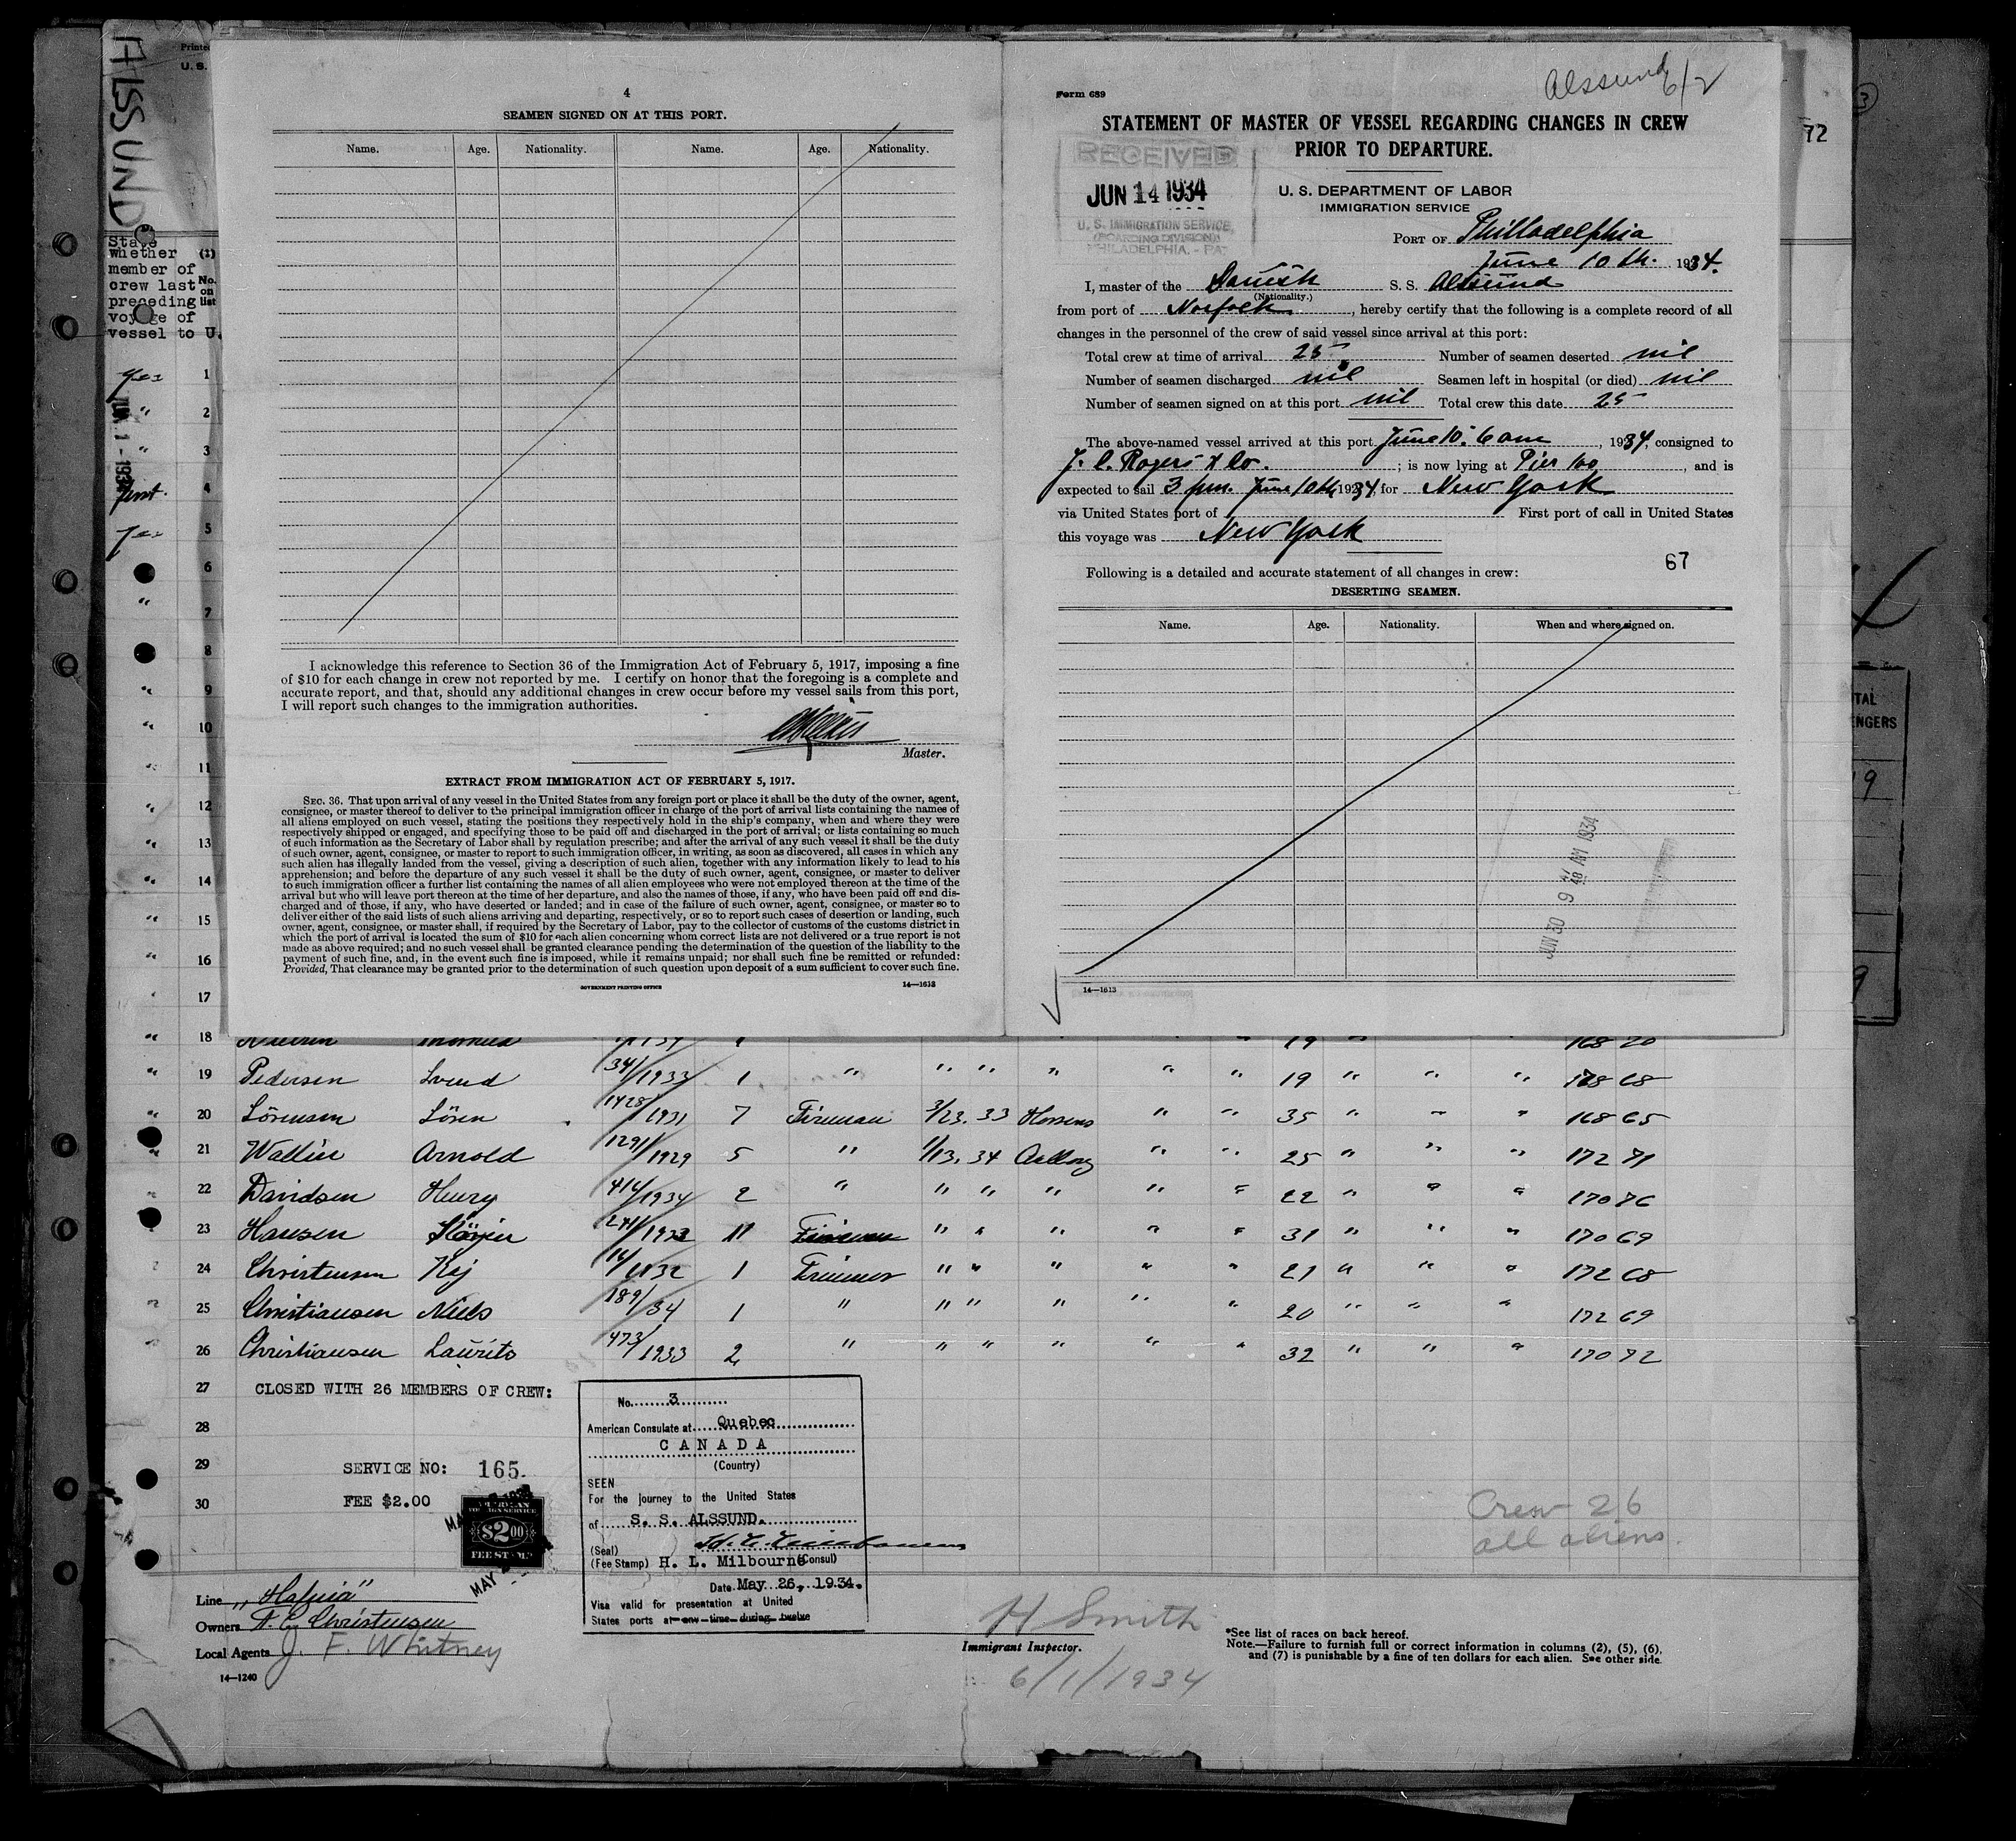 ALSSUND
Printed
U. S.
State
whether
member of
crew last
preceding
voyage of
vessel to U.
(1)
No.
on
list
4
SEAMEN SIGNED ON AT THIS PORT.
Name. Age. Nationality. Name. Age. Nationality.
I acknowledge this reference to Section 36 of the Immigration Act of February 5, 1917, imposing a fine
of $10 for each change in crew not reported by me. I certify on honor that the foregoing is a complete and
accurate report, and that, should any additional changes in crew occur before my vessel sails from this port,
I will report such changes to the immigration authorities.
Master.
EXTRACT FROM IMMIGRATION ACT OF FEBRUARY 5, 1917.
SEC. 36. That upon arrival of any vessel in the United States from any foreign port or place it shall be the duty of the owner, agent,
consignee, or master thereof to deliver to the principal immigration officer in charge of the port of arrival lists containing the names of
all aliens employed on such vessel, stating the positions they respectively hold in the ship's company, when and where they were
respectively shipped or engaged, and specifying those to be paid off and discharged in the port of arrival; or lists containing so much
of such information as the Secretary of Labor shall by regulation prescribe; and after the arrival of any such vessel it shall be the duty
of such owner, agent, consignee, or master to report to such immigration officer, in writing, as soon as discovered, all cases in which any
such alien has illegally landed from the vessel, giving a description of such alien, together with any information likely to lead to his
apprehension; and before the departure of any such vessel it shall be the duty of such owner, agent, consignee, or master to deliver
to such immigration officer a further list containing the names of all alien employees who were not employed thereon at the time of the
arrival but who will leave port thereon at the time of her departure, and also the names of those, if any, who have been paid off and dis-
charged and of those, if any, who have deserted or landed; and in case of the failure of such owner, agent, consignee, or master so to
deliver either of the said lists of such aliens arriving and departing, respectively, or so to report such cases of desertion or landing, such
owner, agent, consignee, or master shall, if required by the Secretary of Labor, pay to the collector of customs of the customs district in
which the port of arrival is located the sum of $10 for each alien concerning whom correct lists are not delivered or a true report is not
made as above required; and no such vessel shall be granted clearance pending the determination of the question of the liability to the
payment of such fine, and, in the event such fine is imposed, while it remains unpaid; nor shall such fine be remitted or refunded:
Provided, That clearance may be granted prior to the determination of such question upon deposit of a sum sufficient to cover such fine.
GOVERNMENT PRINTING OFFICE 14—1613
Alssund 6/2
Form 689
STATEMENT OF MASTER OF VESSEL REGARDING CHANGES IN CREW
PRIOR TO DEPARTURE.
RECEIVED
JUN 14 1934
U. S. IMMIGRATION SERVICE,
(BOARDING DIVISION)
PHILADELPHIA, - PA
U. S. DEPARTMENT OF LABOR
IMMIGRATION SERVICE
PORT OF Philladelphia
June 10th. 1934.
I, master of the Danish S. S. Alssund
(Nationality.)
from port of Norfolk, hereby certify that the following is a complete record of all
changes in the personnel of the crew of said vessel since arrival at this port:
Total crew at time of arrival 25 Number of seamen deserted nil
Number of seamen discharged nil Seamen left in hospital (or died) nil
Number of seamen signed on at this port nil Total crew this date 25
The above-named vessel arrived at this port June 10. 6 am, 1934, consigned to
J. C. Rogers & Co.; is now lying at Pier 100, and is
expected to sail 3 pm. June 10th 1934, for New York
via United States port of First port of call in United States
this voyage was New York
67
Following is a detailed and accurate statement of all changes in crew:
DESERTING SEAMEN.
Name. Age. Nationality. When and where signed on.
JUN 30 9 48 AM 1934
14—1613
3
72
TAL
ENGERS
9
yes 1
JUN 1 - 1934
" 2
" 3
first. 4
yes 5
6
" 7
8
" 9
" 10
" 11
" 12
" 13
" 14
" 15
" 16
" 17
" 18 19 168 20
" 19 Pedersen Svend 34/1933 1 " " " " " " 19 " " " 168 68
" 20 Sörensen Sören 1428/1931 7 Fireman 3/23. 33 Horsens " " 35 " " " 168 65
" 21 Wallin Arnold 1291/1929 5 " 1/13. 34 Aalborg " " 25 " " " 172 71
" 22 Davidsen Henry 414/1934 2 " " " " " " 22 " " " 170 76
" 23 Hansen 241/1933 11 Fireman " " " " " 31 " " " 170 69
" 24 Christensen Kaj 14/1132 1 Trimmer " " " " " 21 " " " 172 68
" 25 Christiansen Niels 189/34 1 " " " " " " 20 " " " 172 69
" 26 Christiansen Laurits 473/1933 2 " " " " " " 32 " " " 170 72
27 CLOSED WITH 26 MEMBERS OF CREW:
28
29 SERVICE NO: 165.
30 FEE $2.00
AMERICAN
FOREIGN SERVICE
$2.00
FEE STAMP
MAY
No. 3
American Consulate at Quebec
CANADA
(Country)
SEEN
For the journey to the United States
of S. S. ALSSUND.
(Seal)
(Fee Stamp) H. L. Milbourne (Consul)
Date May 26, 1934.
Visa valid for presentation at United
States ports at any time during twelve
Crew 26
all aliens.
Line "Hafnia"
Owners A. C. Christensen
Local Agents J. F. Whitney
14—1240
H Smith
Immigrant Inspector.
6/1/1934
*See list of races on back hereof.
Note.—Failure to furnish full or correct information in columns (2), (5), (6),
and (7) is punishable by a fine of ten dollars for each alien. See other side.